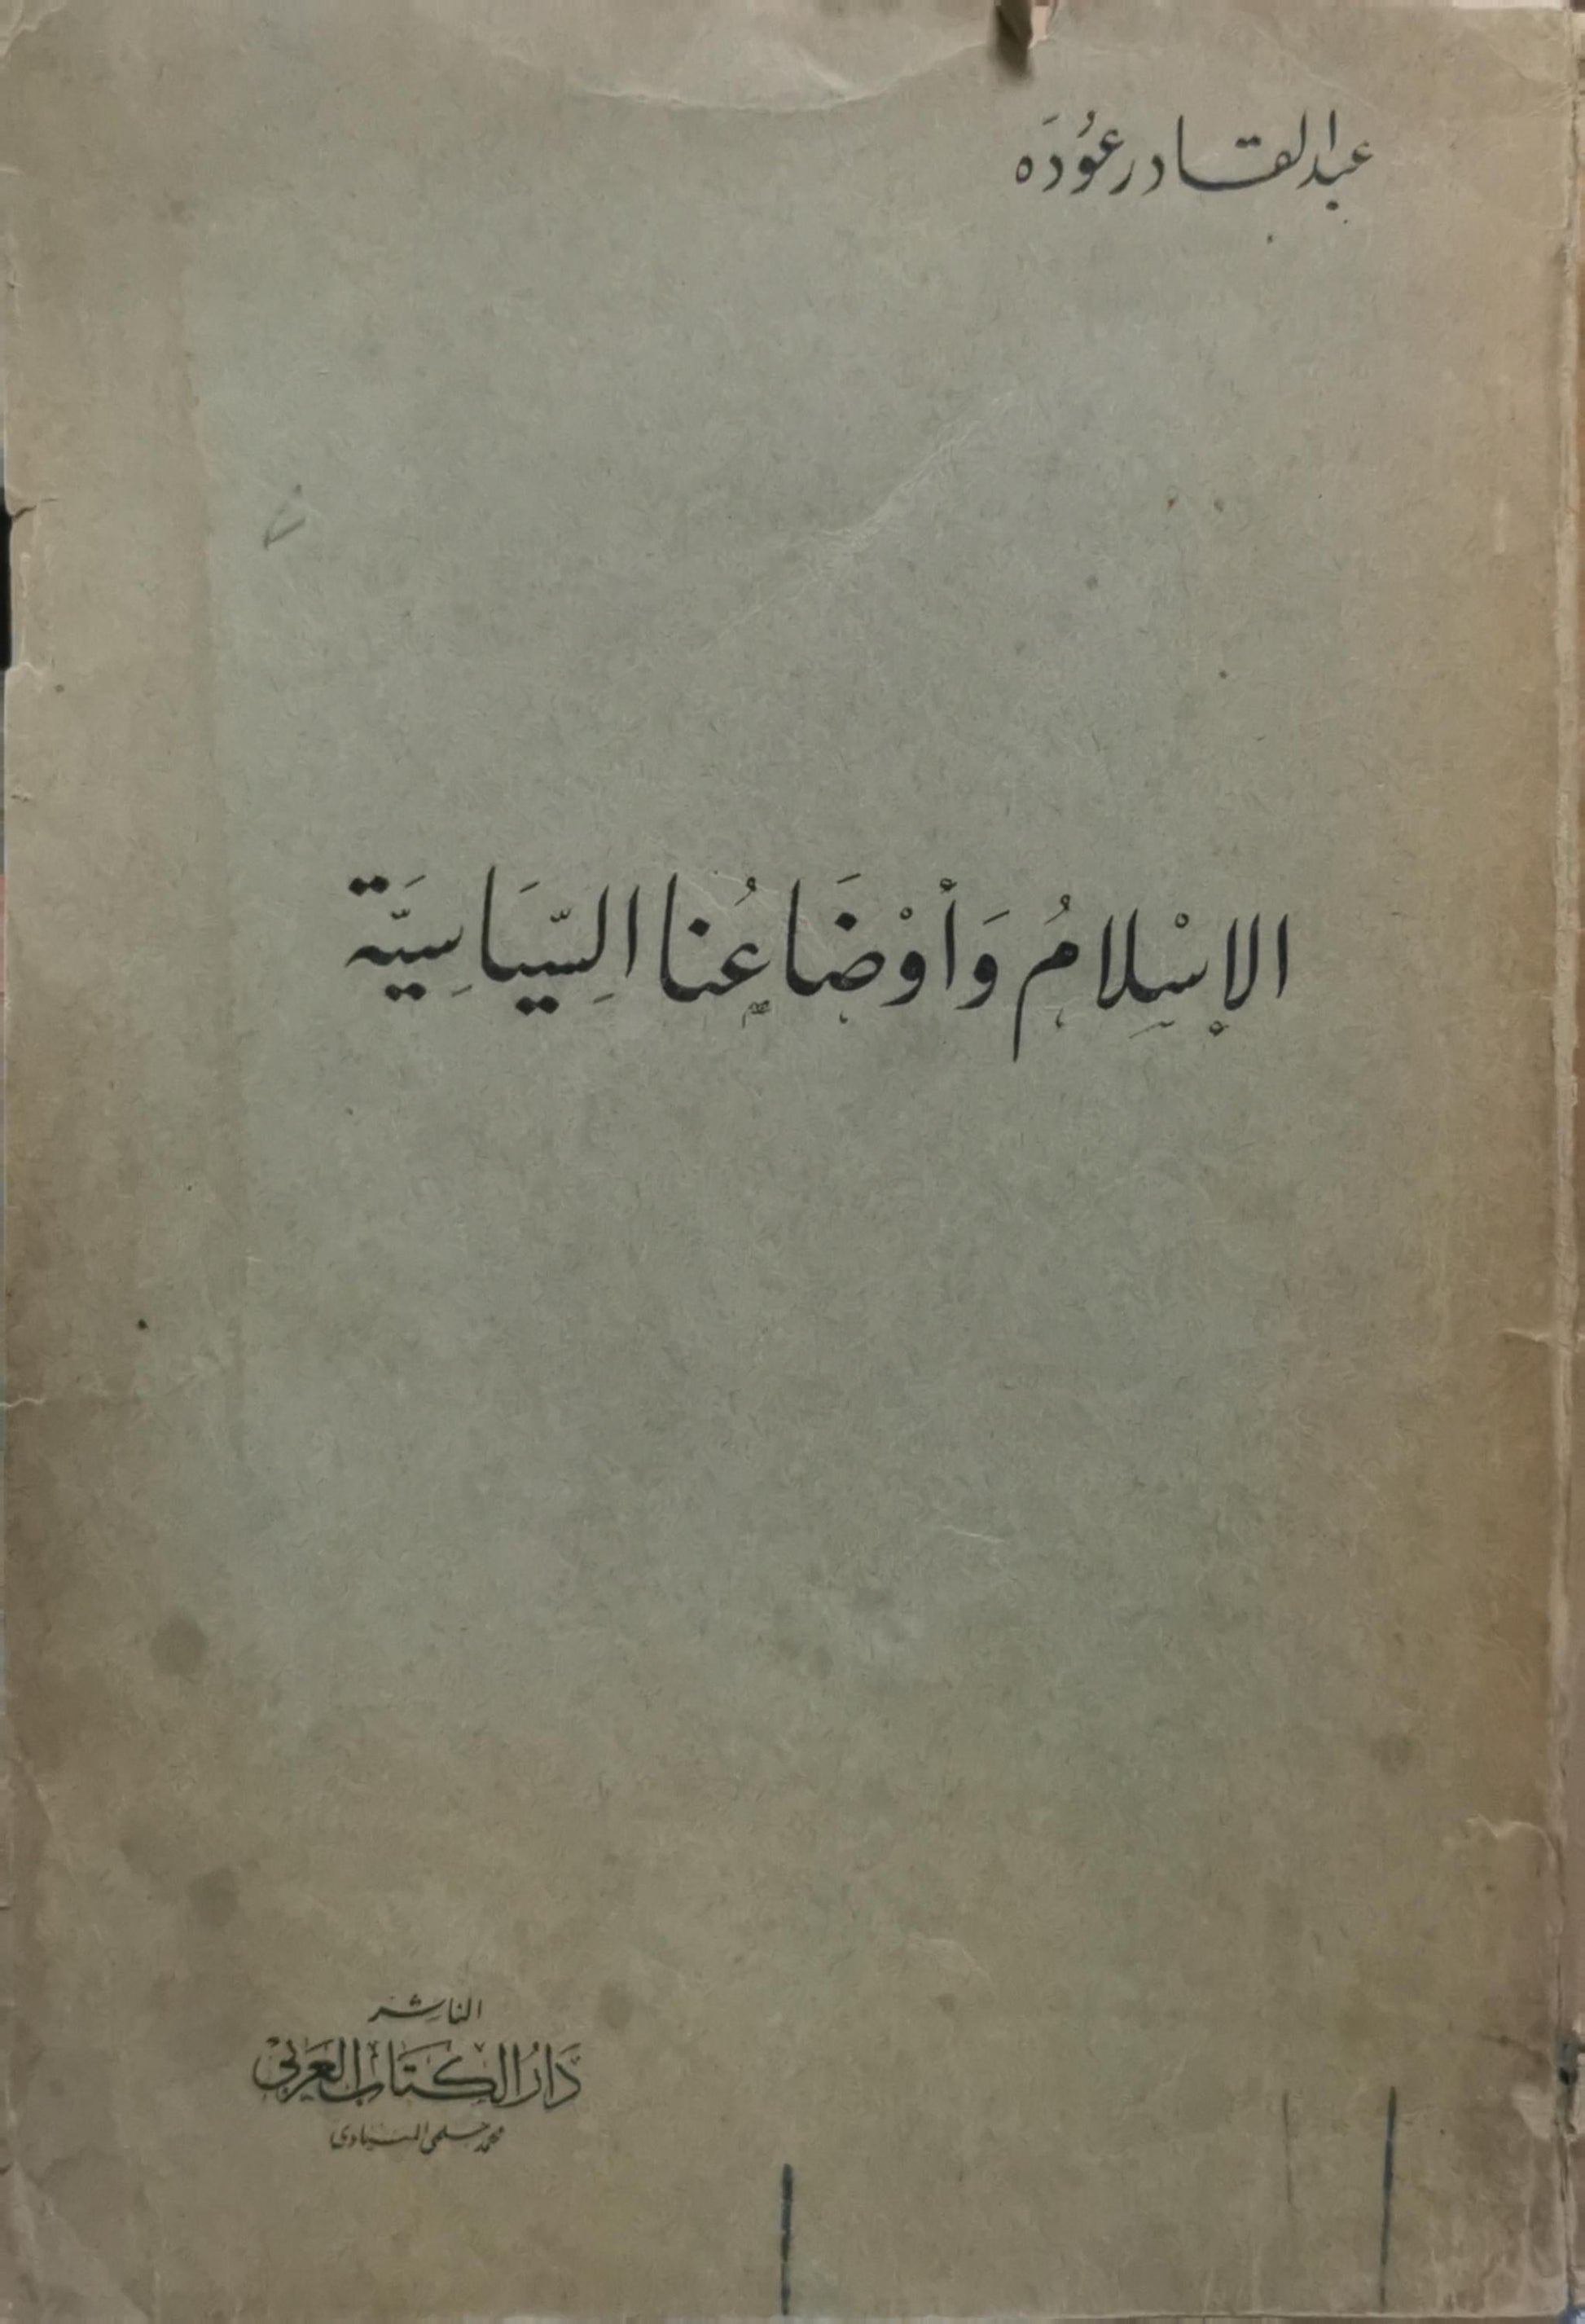 عبد القادر عُودَه
الإِسْلامُ وَأوْضَاعُنا السِّيَاسِيَّة
الناشر
دَارُ الكِتَابِ العَرَبِي
محمد حلمى المنياوى